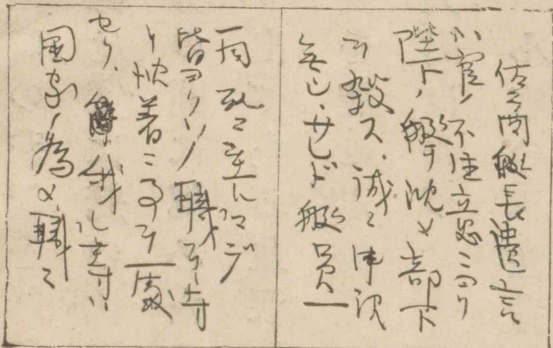 佐久間艇長遺言
小官ノ不注意ニヨリ
陛下ノ艇ヲ沈メ部下
ヲ殺ス、誠ニ申訳
無シ、サレド艇員一
同死ニ至ルマデ
皆ヨクソノ職ヲ守
リ沈着ニ事ヲ處
セリ、我レ等ハ
国家ノ為メ職ニ